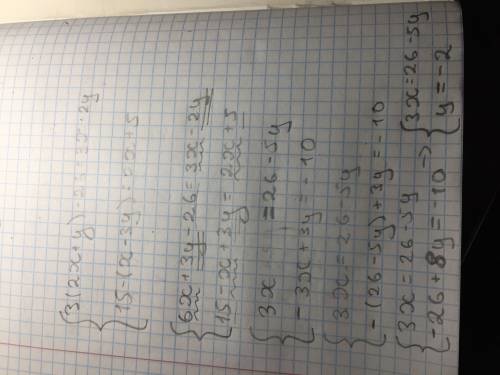 {3(2x+y)-26=3x-2y
{15-(x-3y)=2x+5
{6x+3y-26=3x-2y
{15-x+3y=2x+5
{3x=26-5y
{-3x+3y=-10
{3x=26-5y
{-(26-5y)+3y=-10
{3x=26-5y
{-26+8y=-10 -> {3x=26-5y
{y=-2